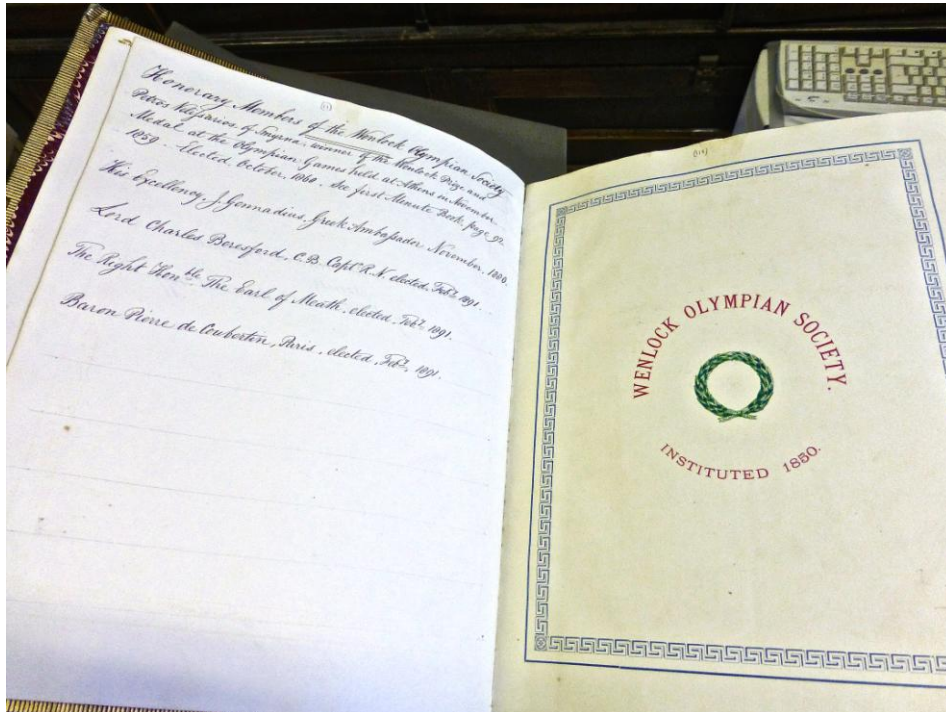 Honorary Members of the Wenlock Olympian Society
Petros Velissarios of Smyrna, winner of the Wenlock Prize and
Medal at the Olympian Games held at Athens in November
1859 - Elected October, 1860. See first Minute Book, page 92
His Excellency, J. Gennadius, Greek Ambassador November,
Lord Charles Beresford, C.B. Capt. R.N. elected, Feby. 1891.
The Right Honble. The Earl of Meath, elected, Feby. 1891.
Baron Pierre de Coubertin, Paris, elected, Feby. 1891.
WENLOCK OLYMPIAN SOCIETY.
INSTITUTED 1850.